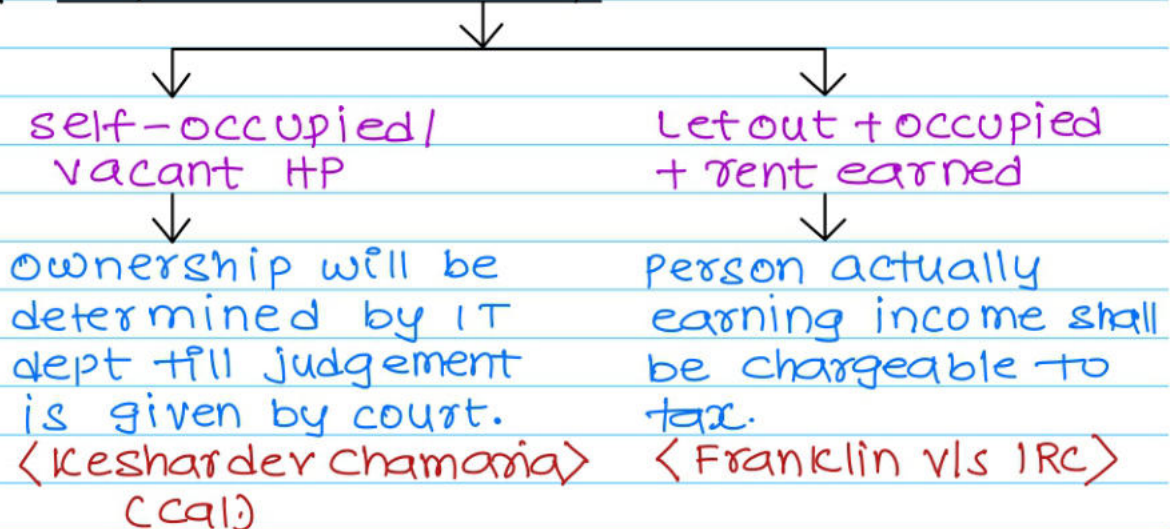 self-occupied/
vacant HP
ownership will be
determined by IT
dept till judgement
is given by court.
<Keshardev Chamaria>
(cal.)
Let out + occupied
+ rent earned
Person actually
earning income shall
be chargeable to
tax.
<Franklin v/s IRC>